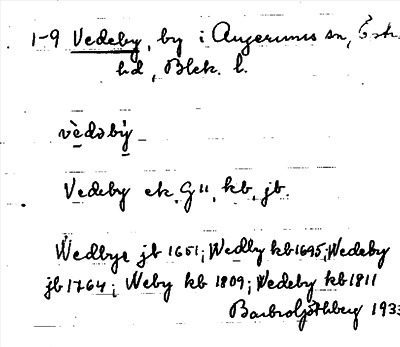 1-9 Vedeby, by i Augerums sn,
hd, Blek. l.
vèdəbý
Vedeby ek. G", kb, jb.
Wedbye jb 1651; Wedby kb 1695; Wedeby
jb 1764; Weby kb 1809; Wedeby kb 1811
1933